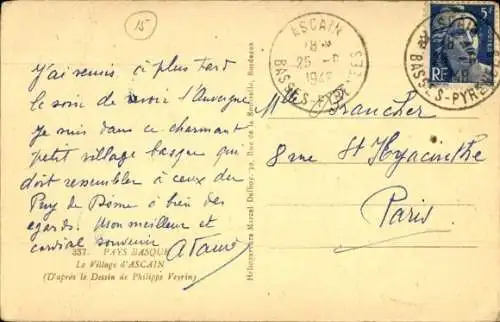 15
J'ai remis à plus tard
le soin de revoir l'Auvergne
Je suis dans ce charmant
petit village basque qui
doit ressembler à ceux du
Puy de Dôme à bien des
égards. Mon meilleur et
cordial souvenir
337. PAYS BASQUE
Le Village d'ASCAIN
(D'après le Dessin de Philippe Veyrin)
Héliogravure Marcel Delboy, Bordeaux
ASCAIN
18
25
BASSES-PYRÉNÉES
5F
RF
ASCAIN
BASSES-PYRÉNÉES
Mlle Francher
8 rue St Hyacinthe
Paris